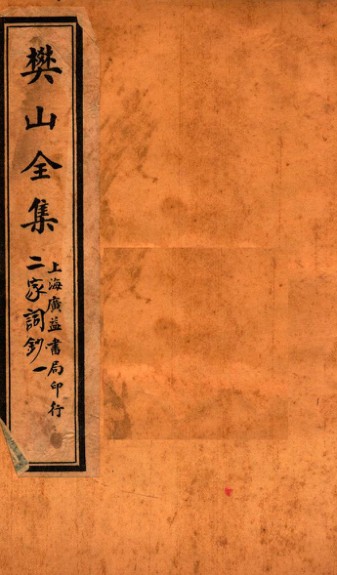 樊山全集
二家詞鈔一
上海廣益書局印行